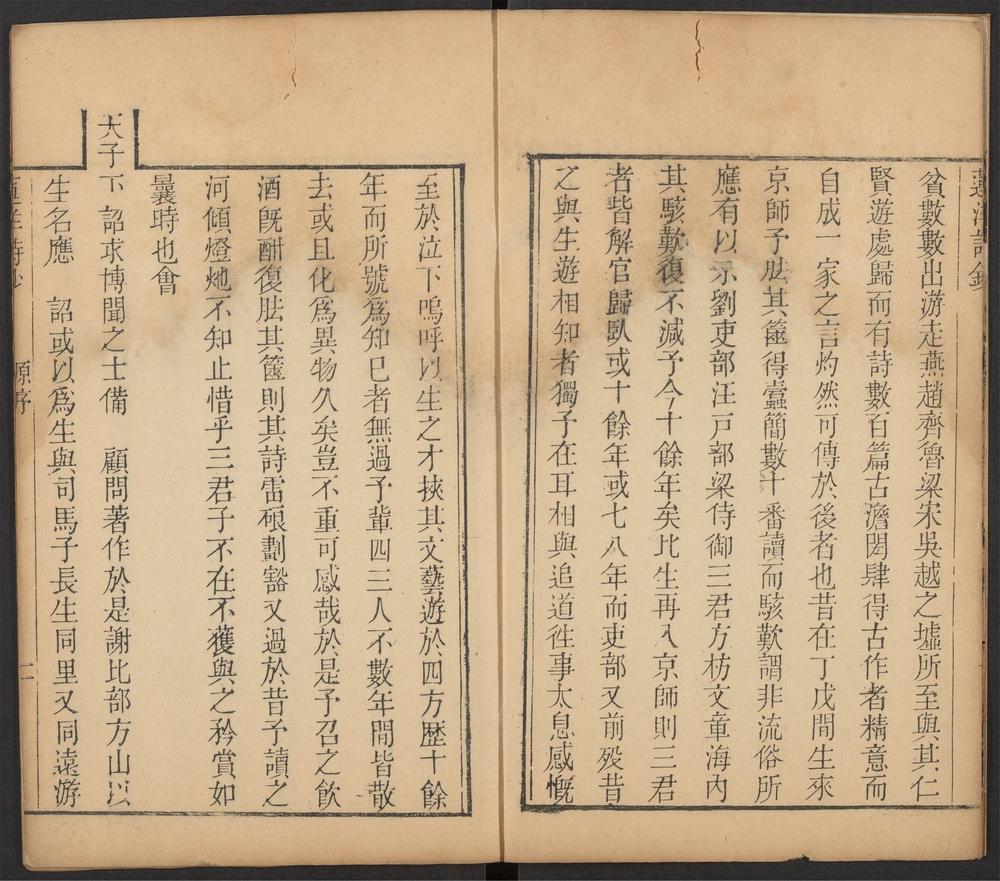 貧數數出游走燕趙齊魯梁宋吳越之墟所至與其仁
賢遊處歸而有詩數百篇古澹閎肆得古作者精意而
自成一家之言灼然可傳於後者也昔在丁戊間生來
京師予胠其篋得蠹簡數十番讀而駭歎謂非流俗所
應有以示劉吏部汪戸部梁侍御三君方枋文章海內
其駭歎復不減予今十餘年矣比生再入京師則三君
者皆解官歸臥或十餘年或七八年而吏部又前殁昔
之與生遊相知者獨予在耳相與追道徃事太息感慨
至於泣下嗚呼以生之才挾其文藝遊於四方歷十餘
年而所號爲知已者無過予輩四三人不數年間皆散
去或且化爲異物久矣豈不重可感哉於是予召之飲
酒旣酣復胠其篋則其詩雷硠劃豁又過於昔予讀之
河傾燈灺不知止惜乎三君子不在不獲與之矜賞如
曩時也會
天子下 詔求博聞之士備 顧問著作於是謝比部方山以
生名應 詔或以爲生與司馬子長生同里又同遠游
原序 二